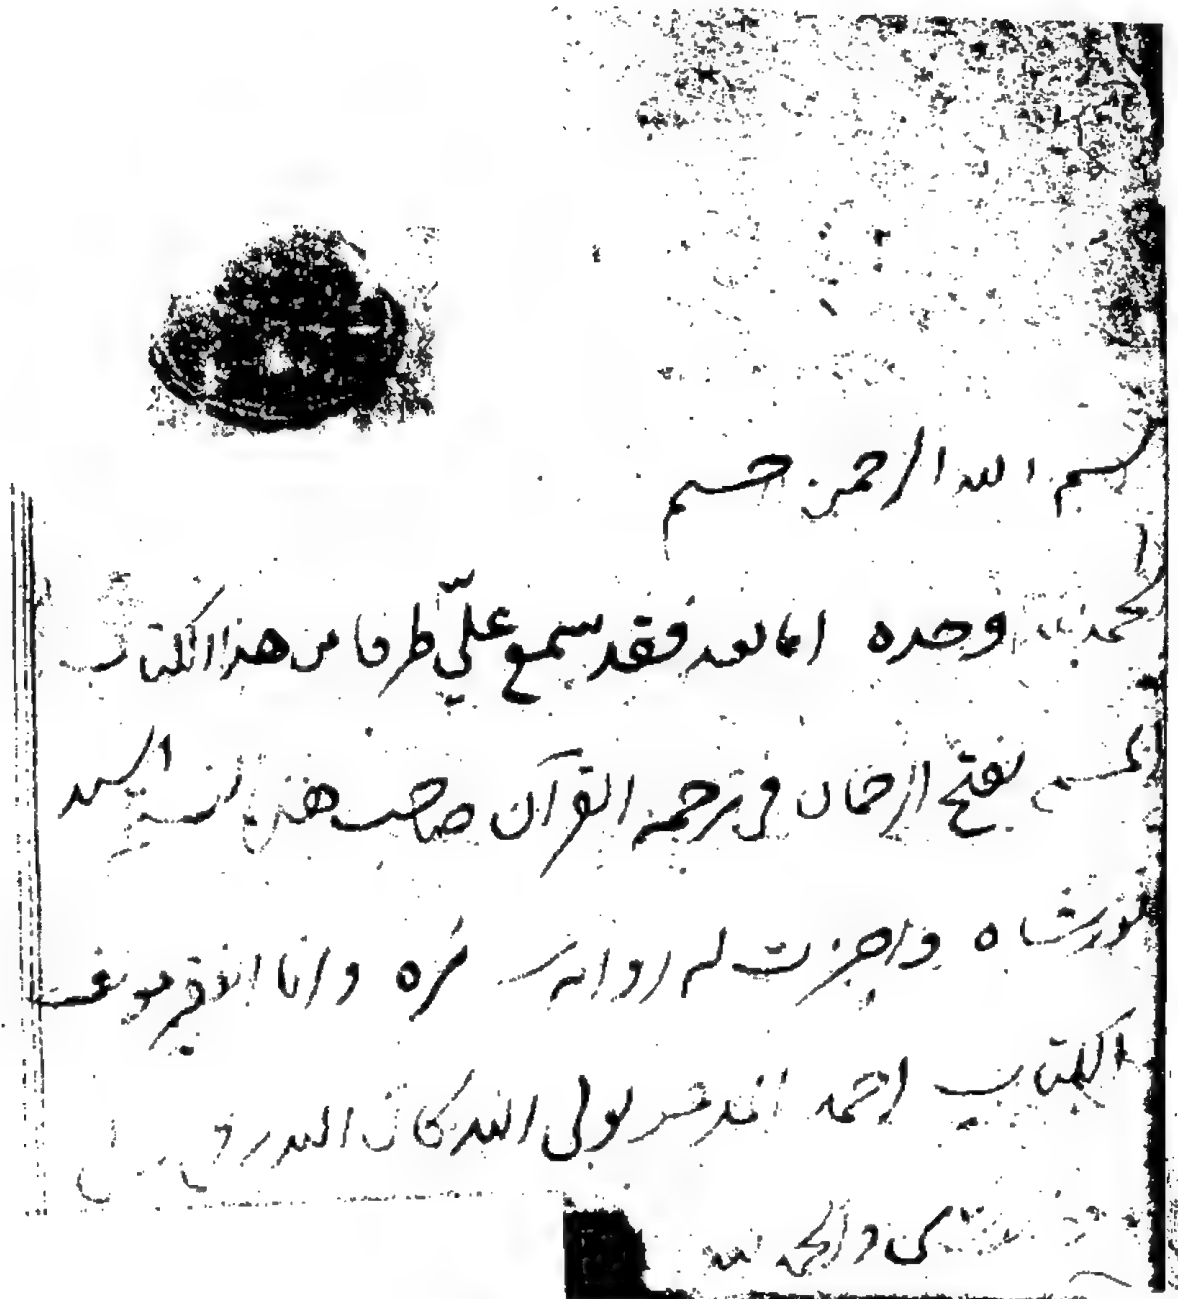 بسم الله الرحمن حسم
الحمد لله وحده اما بعد فقد سمع عليّ طرفا من هذا الكتاب
بفتح الرحمان في ترجمه القرآن صاحب هذه السيد
نورشاه واجزت له وانا الفقير مولف
الكتاب احمد بولى الله كان الله
والحمد لله